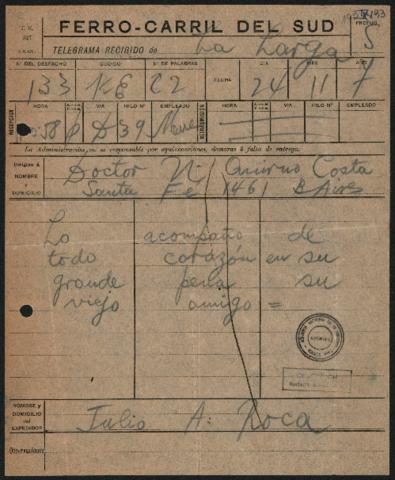 FERRO-CARRIL DEL SUD
TELEGRAMA RECIBIDO de La Larga
Nº DEL DESPACHO CODIGO Nº DE PALABRAS FECHA DIA MES AÑO
133 K8 22 24 11 7
HORA VIA HILO Nº EMPLEADO HORA VIA HILO Nº EMPLEADO
D 39
La Administración, no es responsable por equivocaciones, demoras ó falta de entrega.
Dirigido á
NOMBRE
y
DOMICILIO
Doctor N. Quirno Costa
Santa Fé 1461 B Aires
Lo acompaño de
todo corazón en su
grande pena su
viejo amigo =
NOMBRE y
DOMICILIO
del
EXPEDIDOR
Julio A. Roca
Observaciones